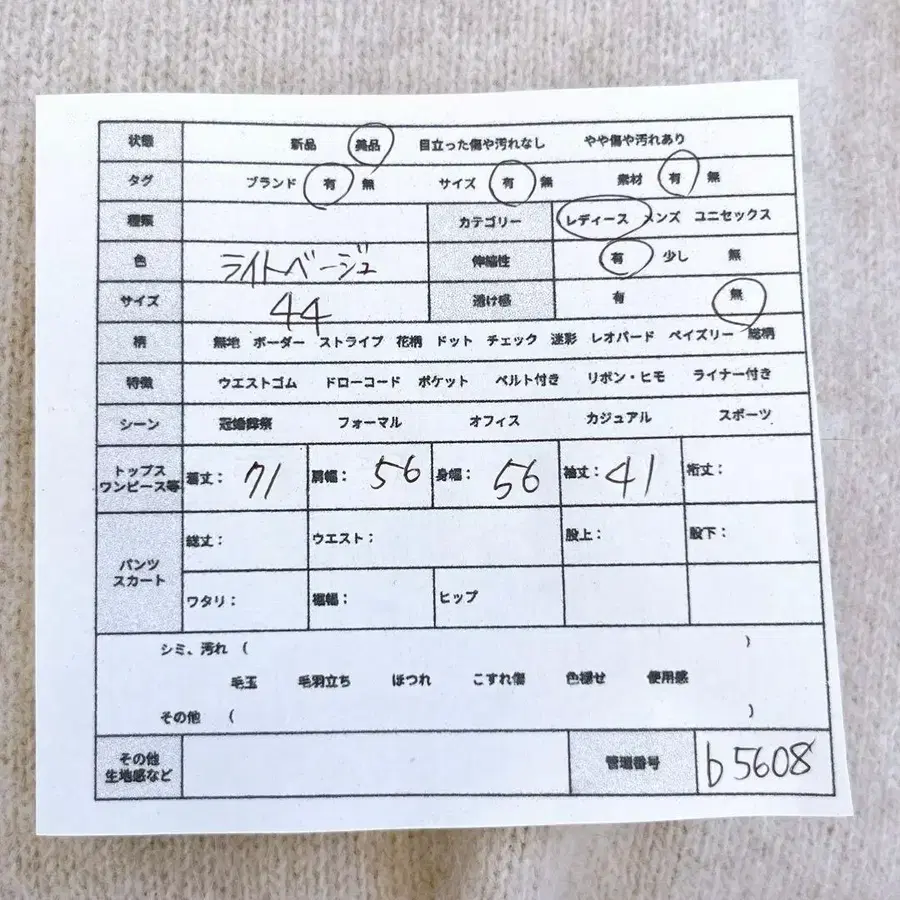 状態 新品 美品 目立った傷や汚れなし やや傷や汚れあり
タグ ブランド 有 無 サイズ 有 無 素材 有 無
種類 カテゴリー レディース メンズ ユニセックス
色 ライトベージュ 伸縮性 有 少し 無
サイズ 44 透け感 有 無
柄 無地 ボーダー ストライプ 花柄 ドット チェック 迷彩 レオパード ペイズリー 総柄
特徴 ウエストゴム ドローコード ポケット ベルト付き リボン・ヒモ ライナー付き
シーン 冠婚葬祭 フォーマル オフィス カジュアル スポーツ
トップス
ワンピース等 着丈: 71 肩幅: 56 身幅: 56 袖丈: 41 裄丈:
パンツ
スカート 総丈: ウエスト: 股上: 股下:
ワタリ: 裾幅: ヒップ
シミ、汚れ ( )
毛玉 毛羽立ち ほつれ こすれ傷 色褪せ 使用感
その他 ( )
その他
生地感など 管理番号 b5608